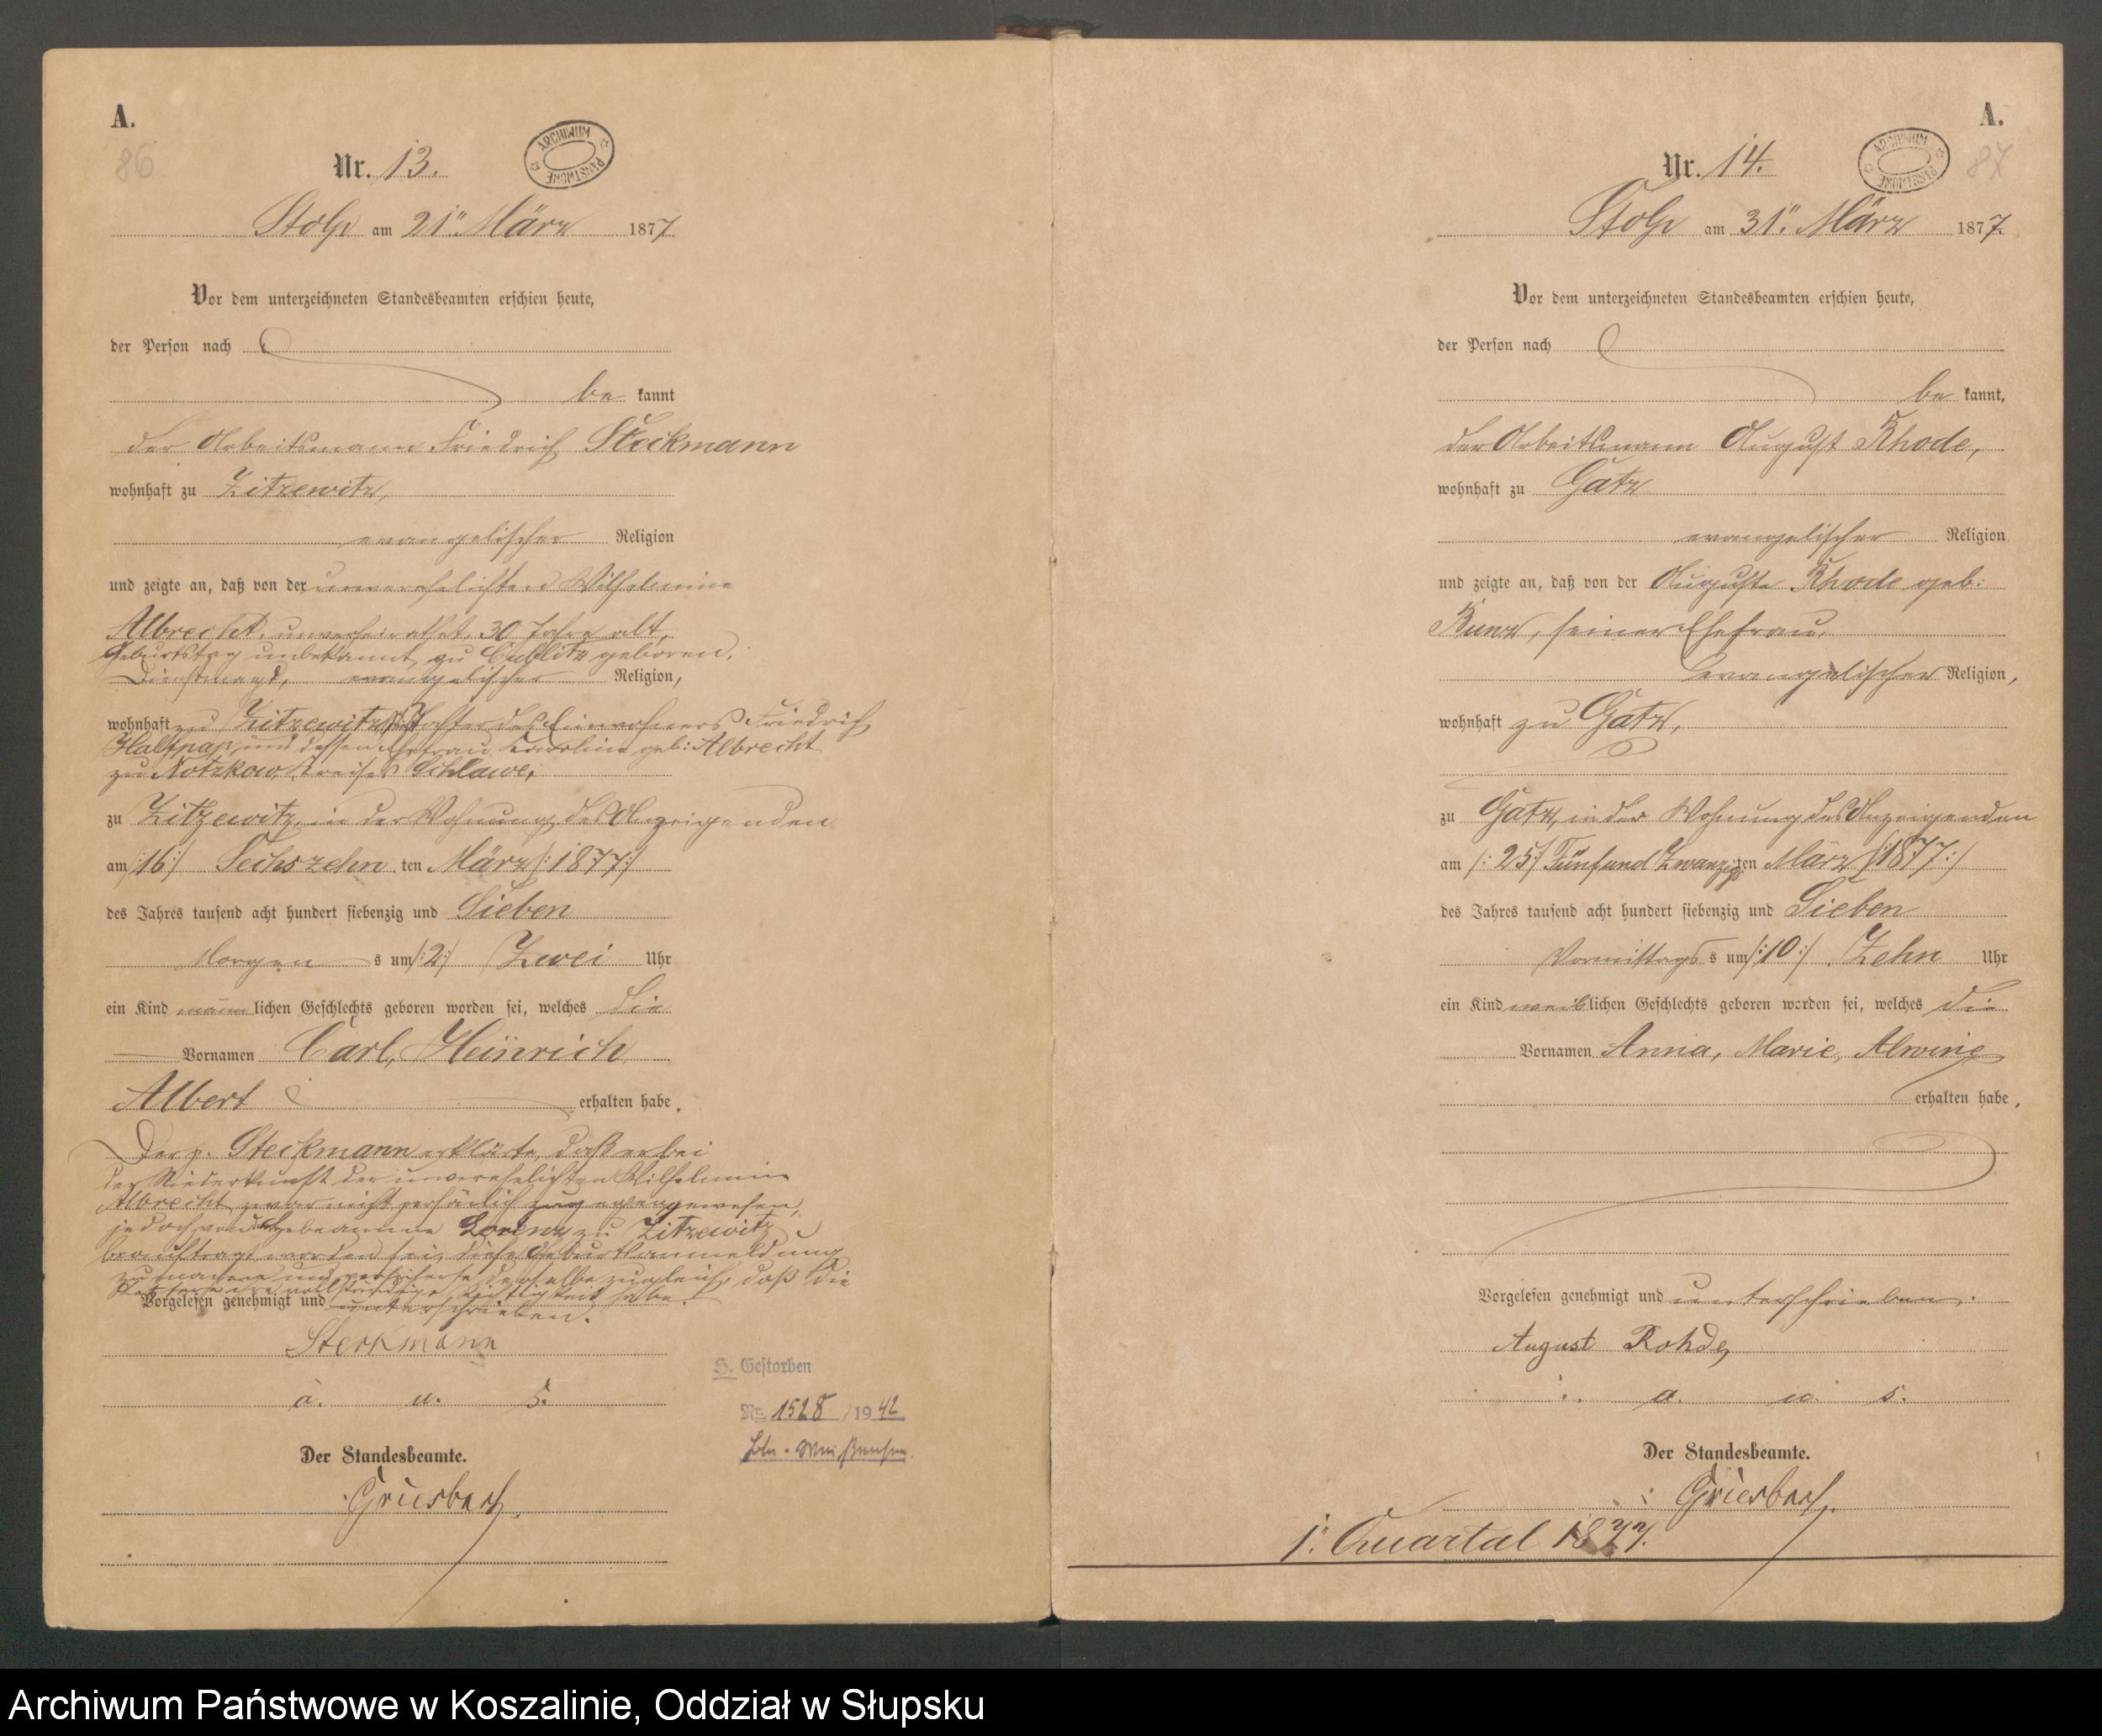 A.
86
Nr. 13.
ARCHIWUM PAŃSTWOWE
Stolp am 21ten März 1877
Vor dem unterzeichneten Standesbeamten erschien heute,
der Person nach
be kannt
der Arbeitsmann Friedrich Steckmann
wohnhaft zu Zitzewitz,
evangelischer Religion
und zeigte an, daß von der unverehelichten Wilhelmine
Albrecht, unverheirathet, 30 Jahre alt,
Geburtstag unbekannt, zu Cublitz geboren,
Dienstmagd, evangelischer Religion,
wohnhaft zu Zitzewitz, Tochter des Einwohners Friedrich
und dessen Ehefrau Karoline geb: Albrecht
zu Notzkow Kreises Schlawe,
zu Zitzewitz, in der Wohnung des Anzeigenden
am /:16:/ Sechszehn ten März /:1877:/
des Jahres tausend acht hundert siebenzig und Sieben
Morgen s um /:2:/ Zwei Uhr
ein Kind männ lichen Geschlechts geboren worden sei, welches die
Vornamen Carl, Heinrich
Albert erhalten habe.
Der p. Steckmann erklärte, daß er bei
der Niederkunft der unverehelichten Wilhelmine
Albrecht zwar nicht persönlich zugegen gewesen,
jedoch von der Hebeamme Lorenz zu Zitzewitz
beauftragt worden sei, diese Geburtsanmeldung
zu machen und versicherte derselbe zugleich, daß die
vollständige Richtigkeit habe.
Vorgelesen genehmigt und unterschrieben.
Sterkmann
a. u. s.
Der Standesbeamte.
Griesbach
H. Gestorben
Nr. 1528 / 1942
Bln.-Weißensee.
A.
87
Nr. 14.
ARCHIWUM PAŃSTWOWE
Stolp am 31ten März 1877.
Vor dem unterzeichneten Standesbeamten erschien heute,
der Person nach
be kannt,
der Arbeitsmann August Rhode,
wohnhaft zu Gatz
evangelischer Religion
und zeigte an, daß von der Auguste Rhode geb:
Kunz, seiner Ehefrau,
evangelischer Religion,
wohnhaft zu Gatz,
zu Gatz, in der Wohnung des Anzeigenden
am /:25:/ Fünf und Zwanzigs ten März /:1877:/
des Jahres tausend acht hundert siebenzig und Sieben
Vormittags s um /:10:/ Zehn Uhr
ein Kind weib lichen Geschlechts geboren worden sei, welches die
Vornamen Anna, Marie, Alwine
erhalten habe.
Vorgelesen genehmigt und unterschrieben.
August Rohde
a. u. s.
Der Standesbeamte.
Griesbach.
1. Quartal 1877.
Archiwum Państwowe w Koszalinie, Oddział w Słupsku